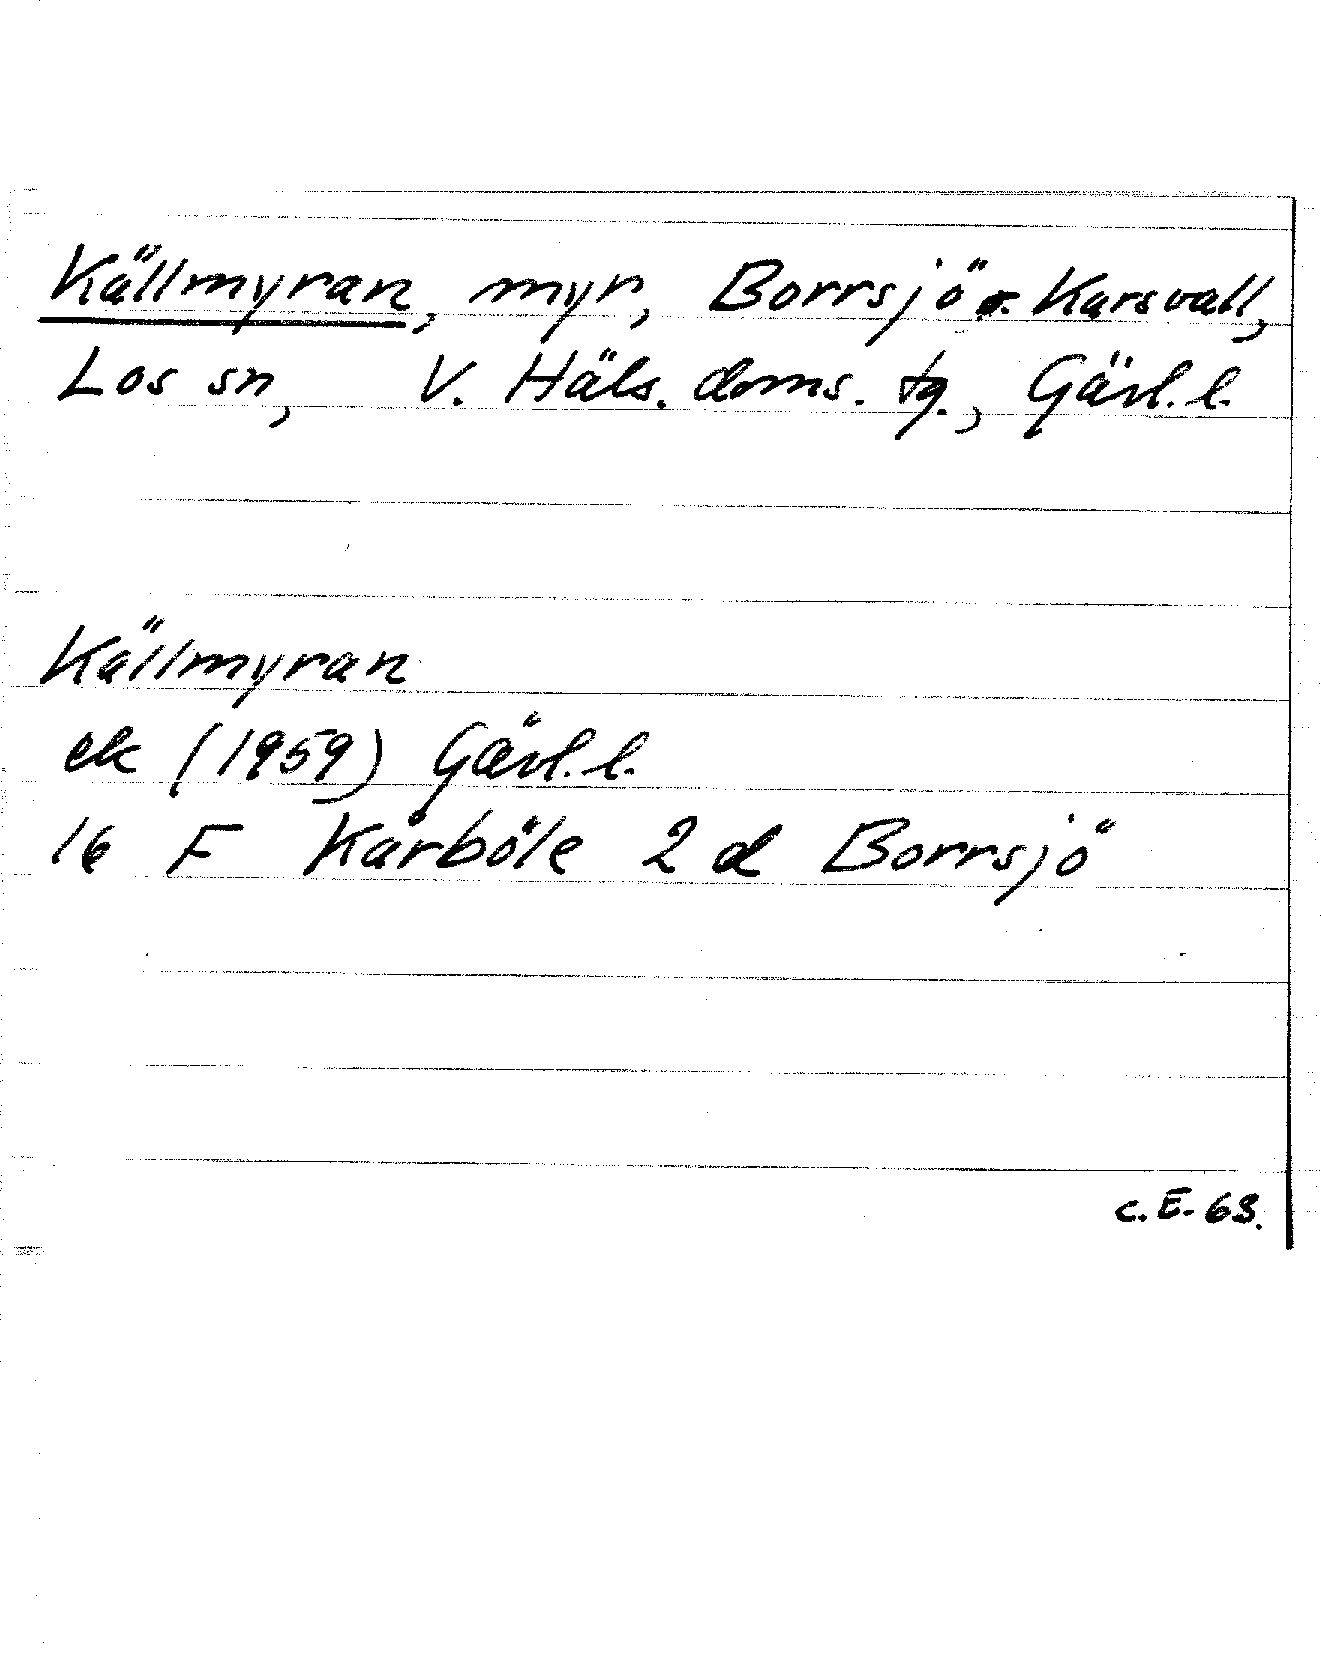 Källmyran, myr, Borrsjö o. Karsvall,
Los sn, V. Häls. doms. tg., Gävl. l.
Källmyran
ek (1959) Gävl. l.
16 F Kårböle 2 d Borrsjö
C. E. 63.